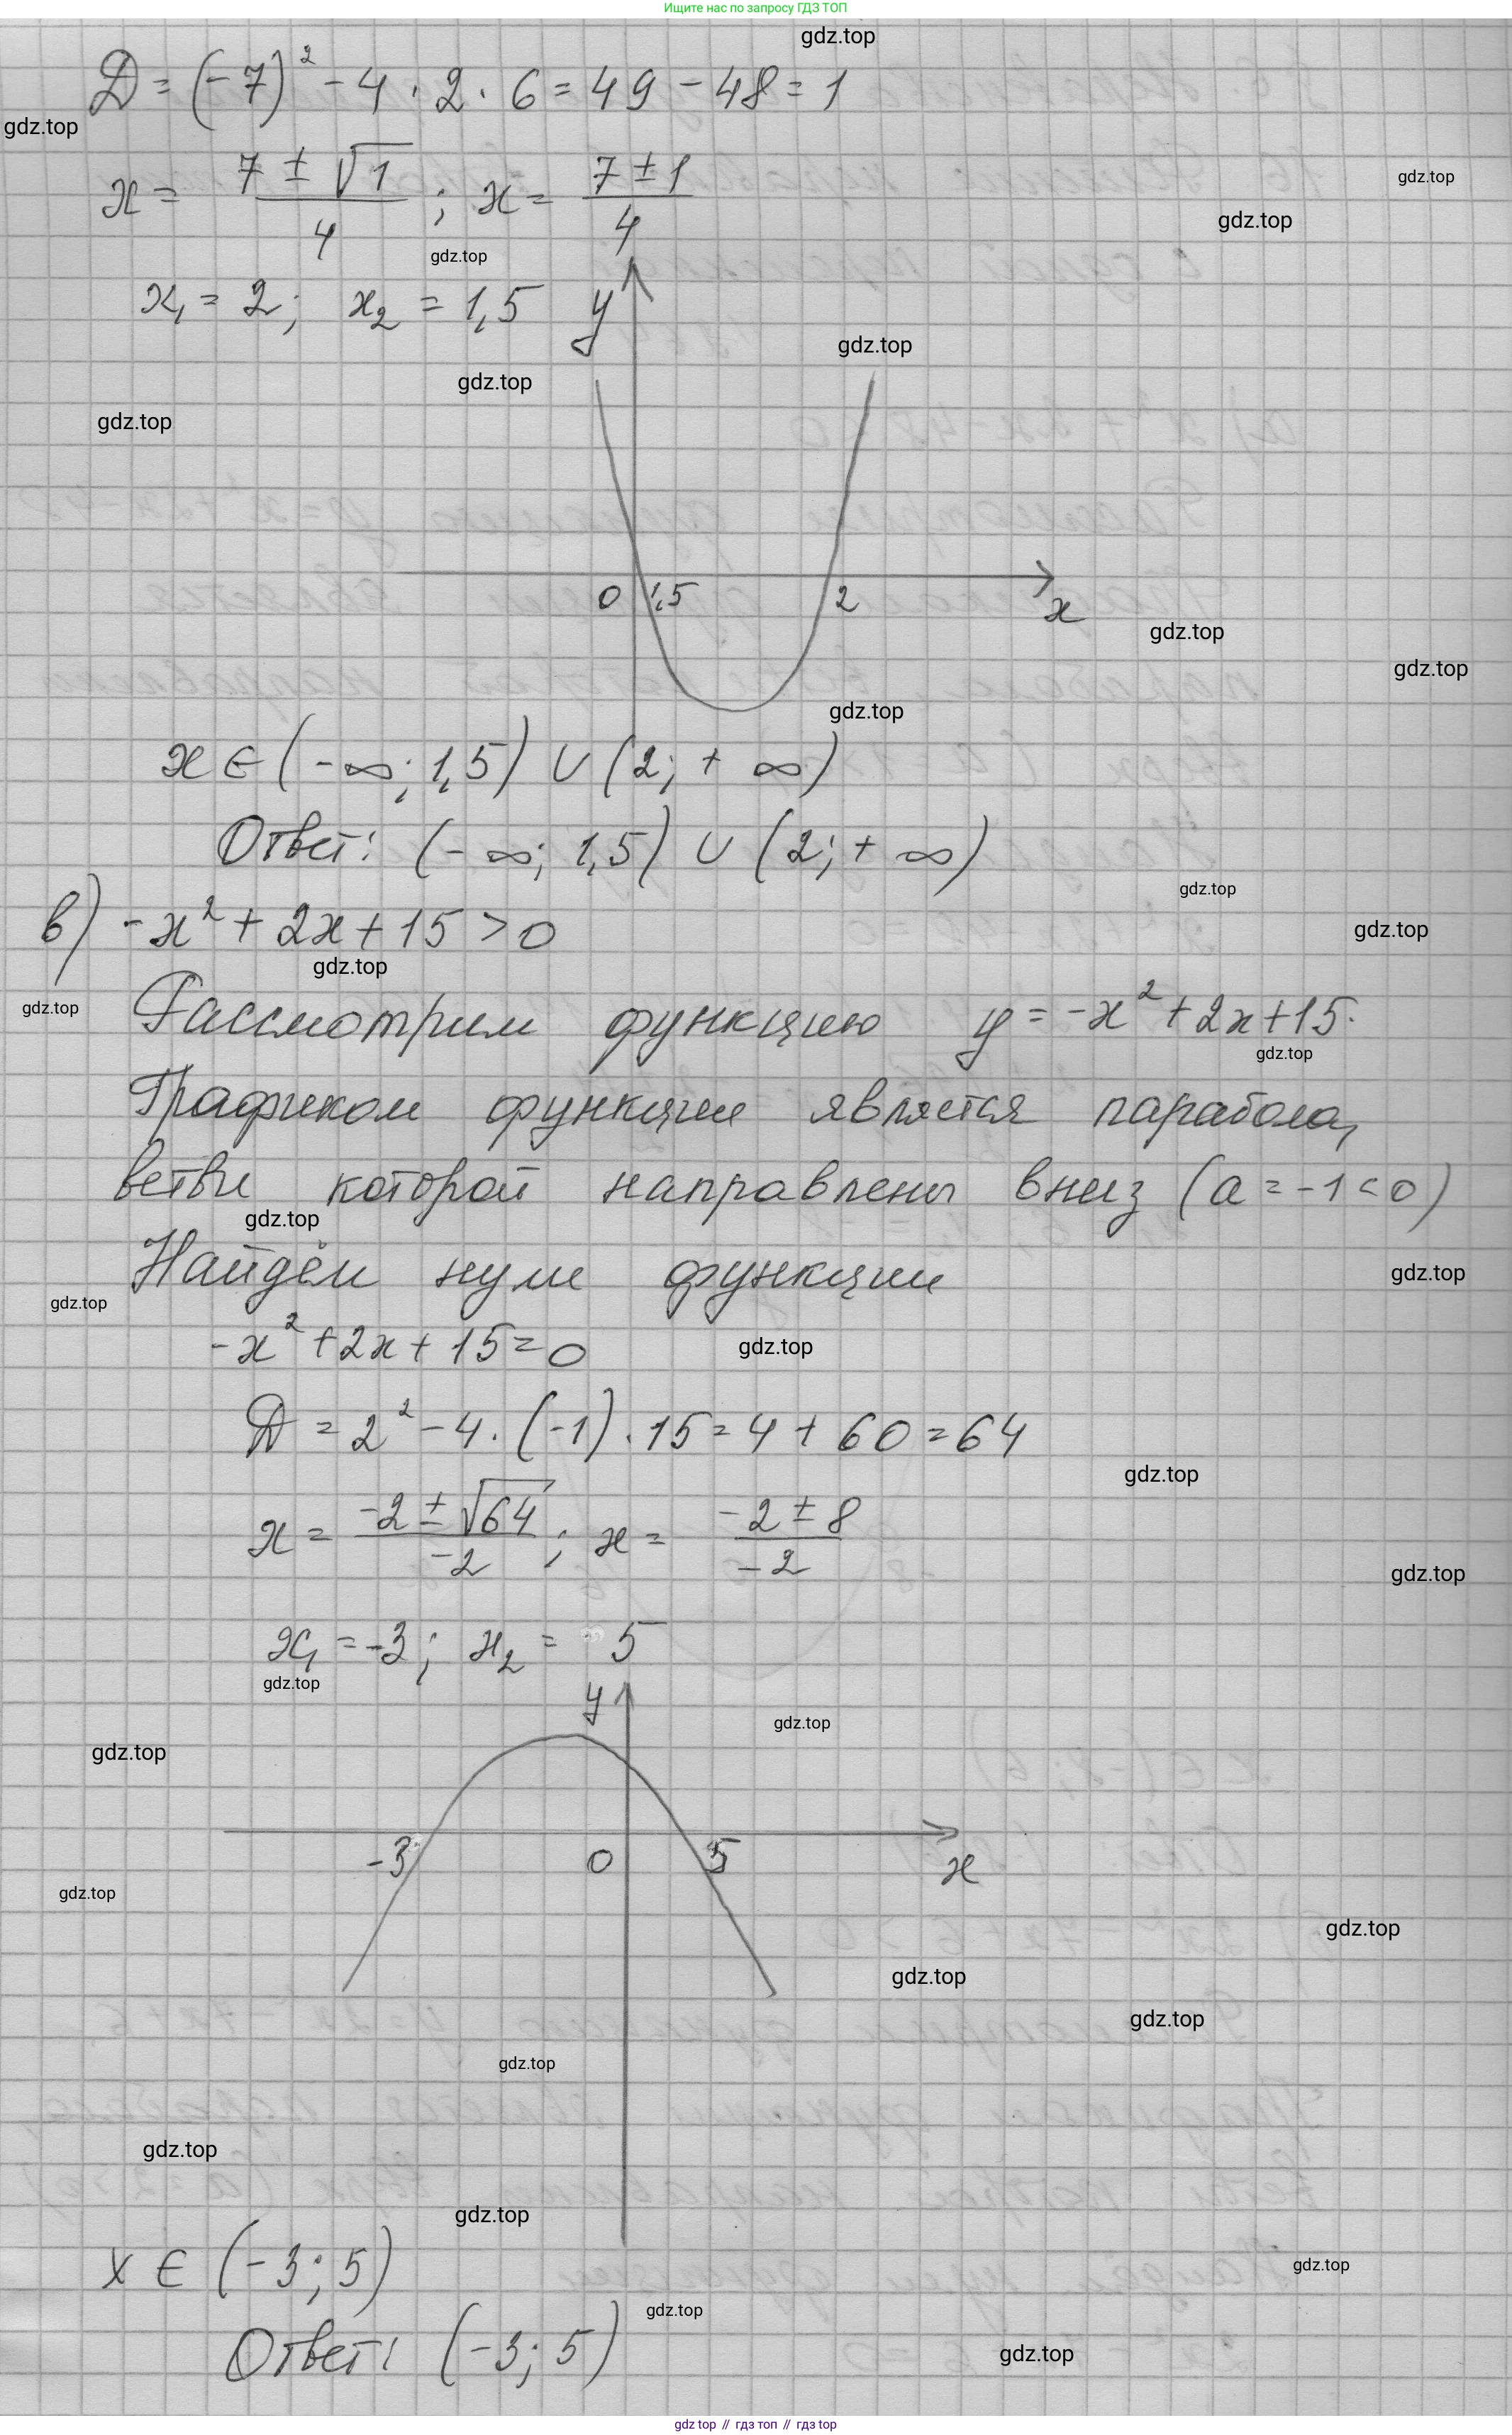 Ищите нас по запросу ГДЗ ТОП
gdz.top
D = (-7)² - 4 · 2 · 6 = 49 - 48 = 1
gdz.top
x = (7 ± √1)/4 ; x = (7 ± 1)/4
gdz.top
gdz.top
gdz.top
x₁ = 2; x₂ = 1,5
y
gdz.top
gdz.top
gdz.top
0 1,5 2 x
gdz.top
gdz.top
gdz.top
x ∈ (-∞; 1,5) ∪ (2; + ∞)
Ответ: (-∞; 1,5) ∪ (2; + ∞)
gdz.top
в) -x² + 2x + 15 > 0
gdz.top
gdz.top
gdz.top
Рассмотрим функцию y = -x² + 2x + 15.
gdz.top
Графиком функции является парабола,
ветви которой направлены вниз (a = -1 < 0)
gdz.top
Найдём нули функции
gdz.top
gdz.top
-x² + 2x + 15 = 0
gdz.top
D = 2² - 4 · (-1) · 15 = 4 + 60 = 64
gdz.top
x = (-2 ± √64)/-2 ; x = (-2 ± 8)/-2
gdz.top
x₁ = -3; x₂ = 5
gdz.top
y
gdz.top
gdz.top
-3 0 5 x
gdz.top
gdz.top
gdz.top
gdz.top
gdz.top
gdz.top
gdz.top
x ∈ (-3; 5)
gdz.top
gdz.top
Ответ: (-3; 5)
gdz.top
gdz top // гдз топ // гдз top